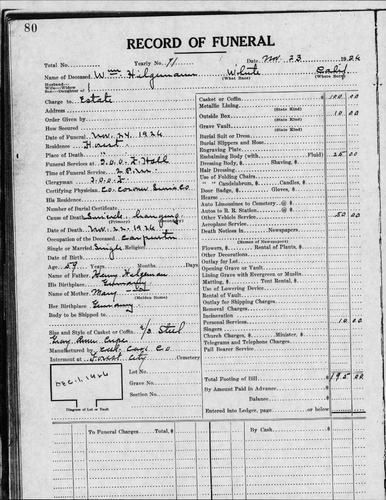 80
RECORD OF FUNERAL
Total No. Yearly No. 71 Date Nov. 23 1926
Name of Deceased Wm Hilgemann White Calif
(What Race) (Where Born)
Husband—
Wife—Widow
Son—Daughter of
Charge to Estate
Address
Order Given by
How Secured
Date of Funeral Nov. 24, 1926
Residence
Place of Death
Funeral Services at I.O.O.F. Hall
Time of Funeral Service 2 P.M.
Clergyman I.O.O.F.
Certifying Physician Co. Coroner
His Residence
Number of Burial Certificate
Cause of Death Suicide hanging
(Primary)
Date of Death Nov. 22, 1926
Occupation of the Deceased Carpenter
Single or Married Single Religion
Date of Birth
Age 59 Years Months Days
Name of Father Henry Hilgeman
His Birthplace Germany
Name of Mother Mary
(Maiden Name)
Her Birthplace Germany
Body to be Shipped to
Size and Style of Casket or Coffin 6/0 Steel
Gray
Manufactured by Cal. Co
Interment at Forest City Cemetery
DEC. 1, 1926
Lot No.
Grave No.
Section No.
Diagram of Lot or Vault
Casket or Coffin $ 100 00
Metallic Lining
(State Kind)
Outside Box 10 00
(State Kind)
Grave Vault
(State Kind)
Burial Suit or Dress
Burial Slippers and Hose
Engraving Plate
Embalming Body (with Fluid) 25 00
Dressing Body, $ Shaving, $
Hair Dressing
Use of Folding Chairs
" " Candelabrum, $ Candles, $
Door Badge, $ Gloves, $
Hearse
Auto Limousines to Cemetery @ $
Autos to R. R. Station @ $
Other Vehicle Service 50 00
Aeroplane Service
Death Notices in Newspapers
(Names of Newspapers)
Flowers, $ Rental of Plants, $
Other Decorations
Outlay for Lot
Opening Grave or Vault
Lining Grave with Evergreen or Muslin
Matting, $ Tent Rental, $
Use of Lowering Device
Rental of Vault
Outlay for Shipping Charges
Removal Charges
Incineration
Personal Services 10 00
Singers
Church Charges, $ Minister, $
Telegrams and Telephone Charges
Pall Bearer Service
Total Footing of Bill $ 195 00
By Amount Paid in Advance
Balance
Entered into Ledger, page or below
To Funeral Charges Total, $
By Cash Total, $